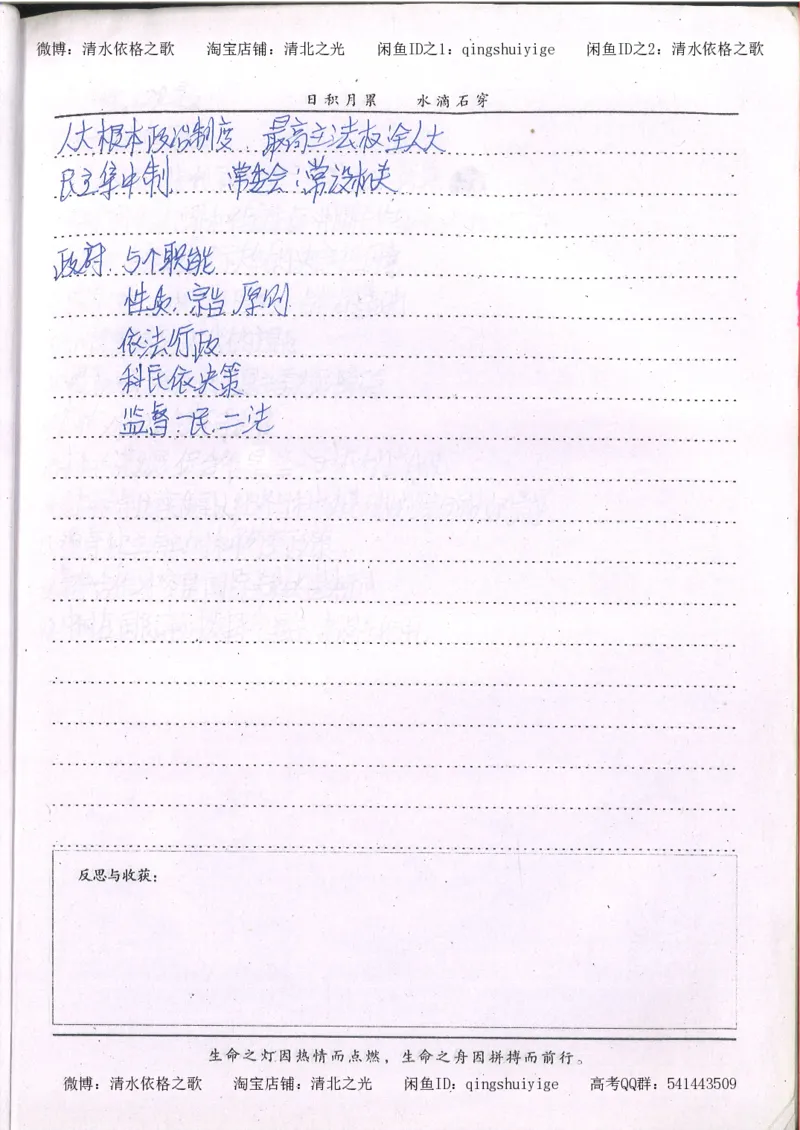 微博：清水依格之歌 淘宝店铺：清北之光 闲鱼ID之1：qingshuiyige 闲鱼ID之2：清水依格之歌
日积月累 水滴石穿
人大根本政治制度 最高立法权：全人大
民主集中制 常委会：常设机关
政府 5个职能
性质.宗旨.原则
依法行政
科民依决策
监督 一民.二法
反思与收获：
生命之灯因热情而点燃，生命之舟因拼搏而前行。
微博：清水依格之歌 淘宝店铺：清北之光 闲鱼ID：qingshuiyige 高考QQ群：541443509